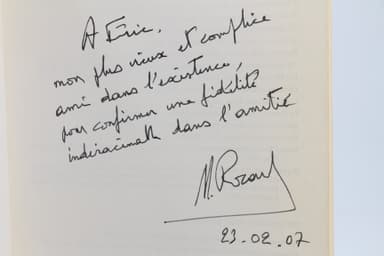 A Eric,
mon plus vieux et complice
ami dans l'existence,
pour confirmer une fidélité
indéracinable dans l'amitié
23.02.07